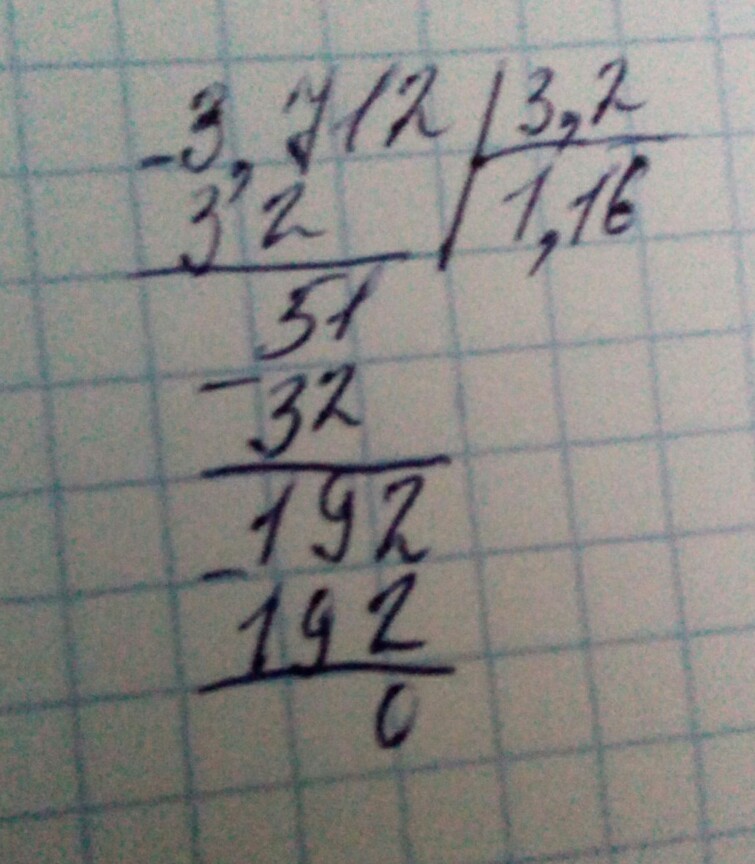 -3,712 | 3,2
3,2 | 1,16
51
-
32
192
-
192
0